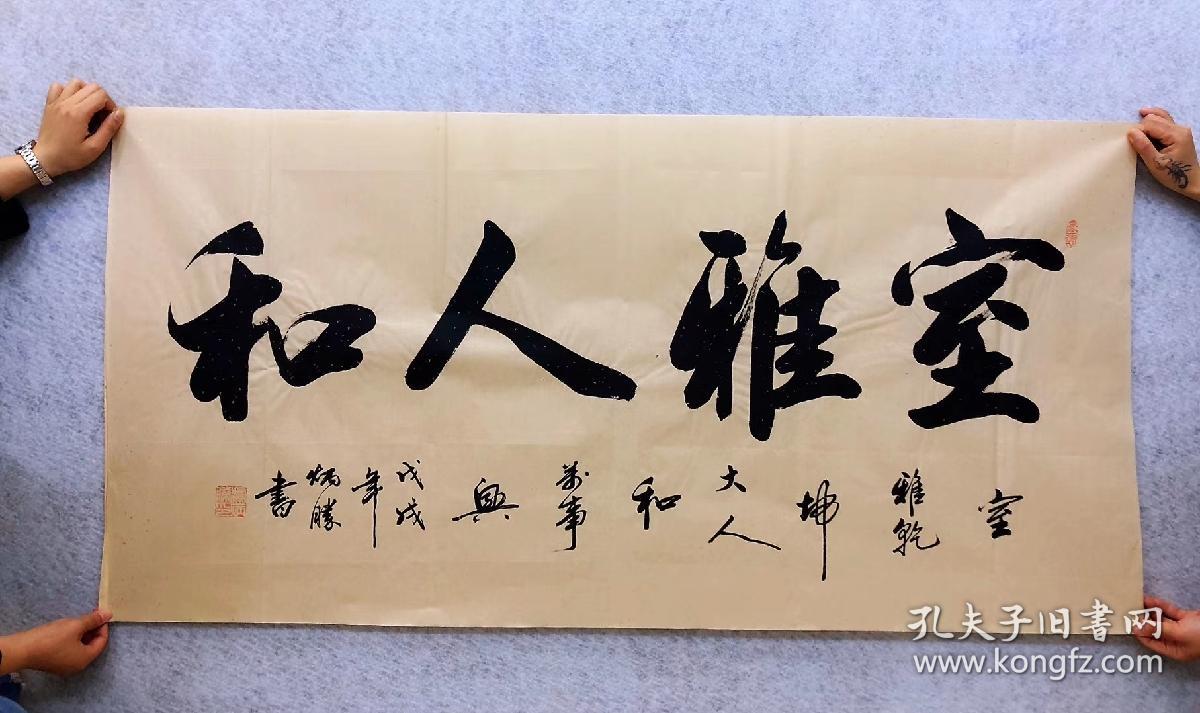 室雅人和
室
雅乾
坤
大
人
和
萬事
興
戊戌
年
炳勝
書
孔夫子旧書网
www.kongfz.com